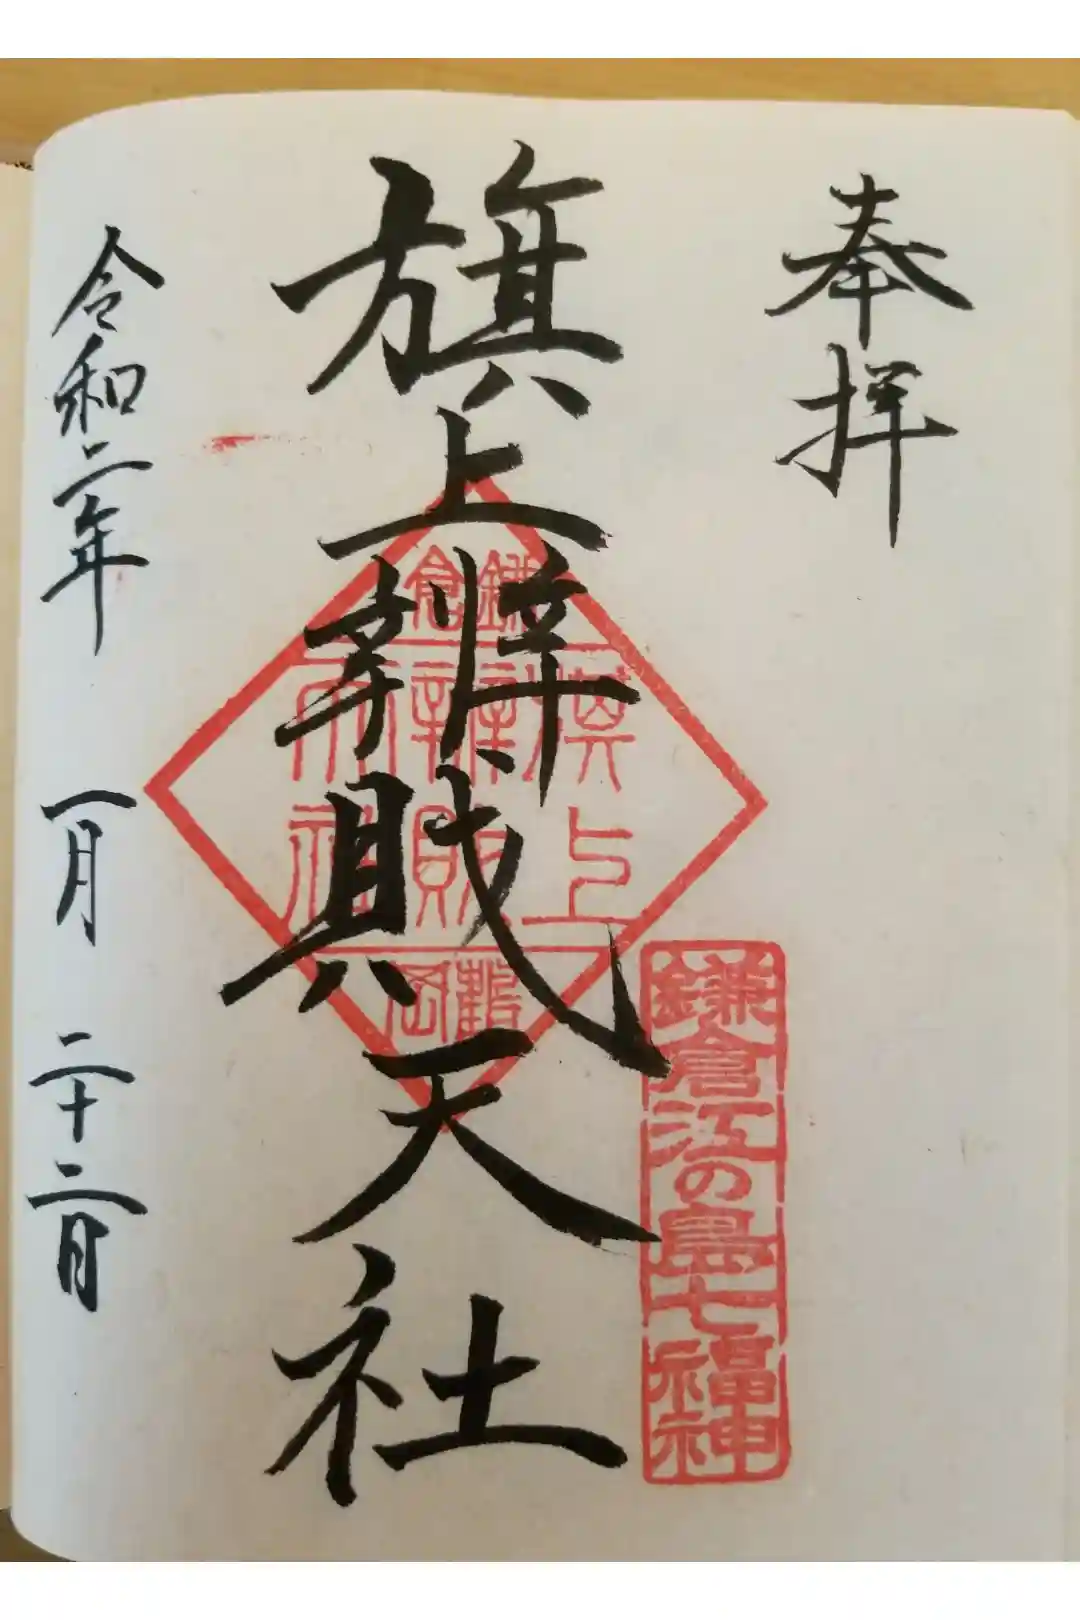 奉拝
鎌倉江の島七福神
旗上辨財天社
鎌倉
旗上
辨財
天社
鶴岡
令和二年 一月 二十二日